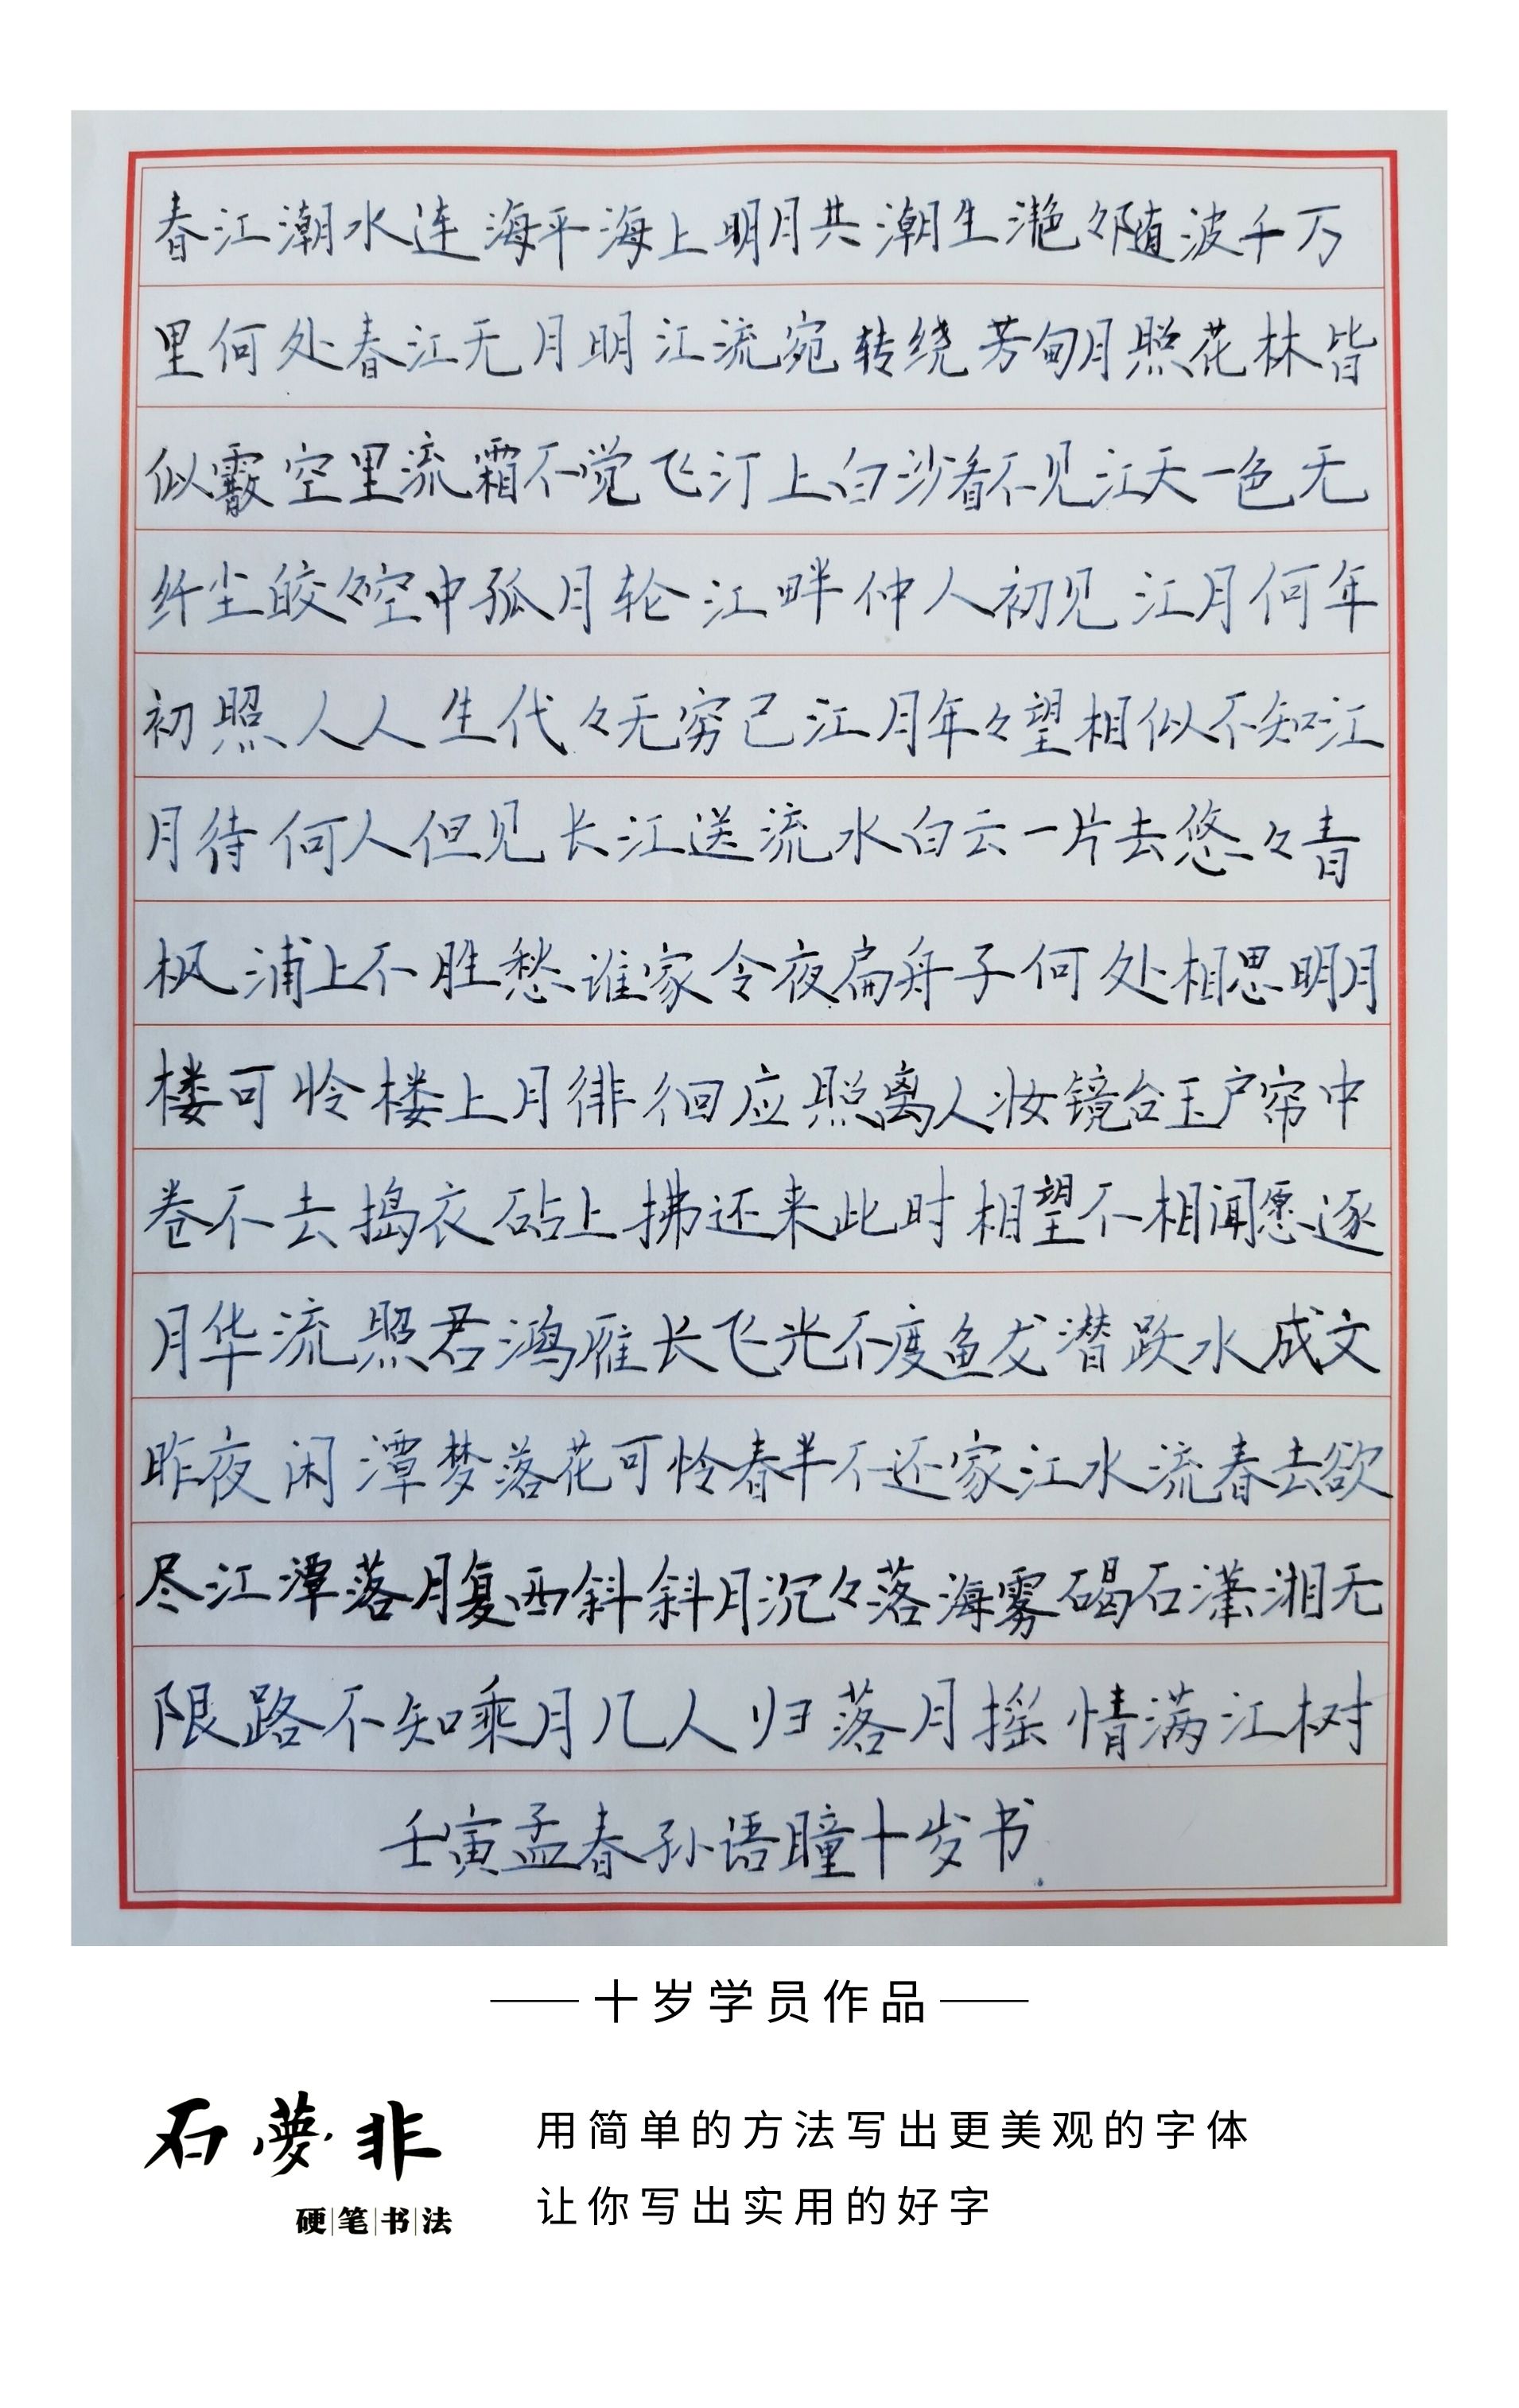 春江潮水连海平海上明月共潮生滟々随波千万
里何处春江无月明江流宛转绕芳甸月照花林皆
似霰空里流霜不觉飞汀上白沙看不见江天一色无
纤尘皎々空中孤月轮江畔仲人初见江月何年
初照人人生代々无穷已江月年々望相似不知江
月待何人但见长江送流水白云一片去悠々青
枫浦上不胜愁谁家今夜扁舟子何处相思明月
楼可怜楼上月徘徊应照离人妆镜台玉户帘中
卷不去捣衣砧上拂还来此时相望不相闻愿逐
月华流照君鸿雁长飞光不度鱼龙潜跃水成文
昨夜闲潭梦落花可怜春半不还家江水流春去欲
尽江潭落月复西斜斜月沉々落海雾碣石潇湘无
限路不知乘月几人归落月摇情满江树
壬寅孟春孙语瞳十岁书
十岁学员作品
石夢非
硬笔书法
用简单的方法写出更美观的字体
让你写出实用的好字